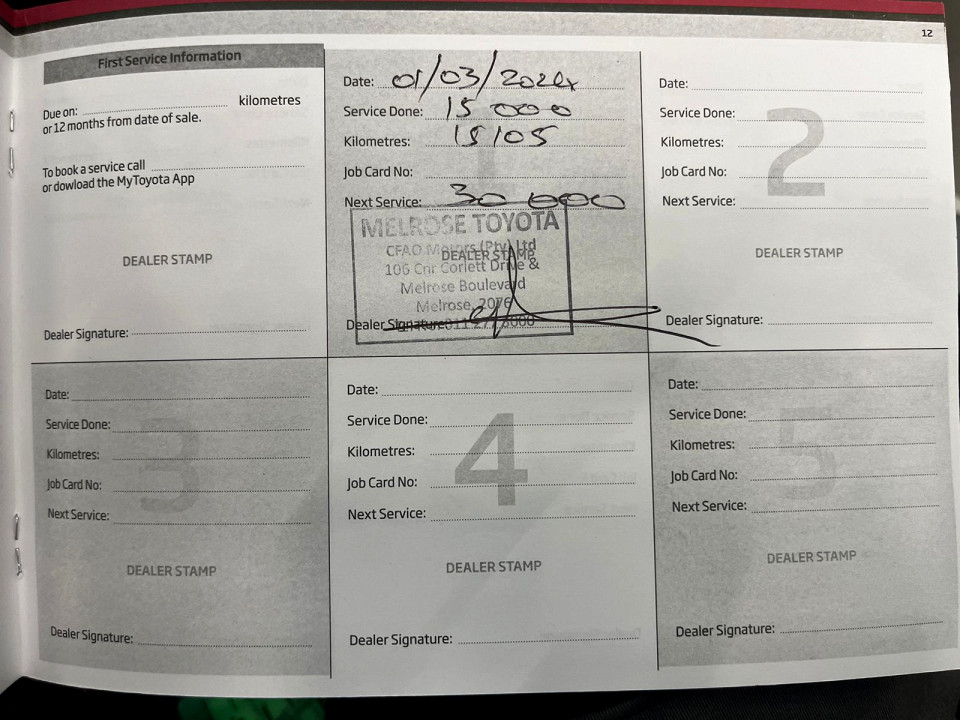 12
First Service Information
Due on: kilometres
or 12 months from date of sale.
To book a service call
or dowload the MyToyota App
DEALER STAMP
Dealer Signature:
Date: 01/03/2024
Service Done: 15 000
Kilometres: 15105
Job Card No:
Next Service: 30 000
1
MELROSE TOYOTA
CFAO Motors (Pty) Ltd
DEALER STAMP
106 Cnr Corlett Drive &
Melrose Boulevard
Melrose, 2076
Dealer Signature
Date:
Service Done:
Kilometres:
Job Card No:
Next Service:
2
DEALER STAMP
Dealer Signature:
Date:
Service Done:
Kilometres:
Job Card No:
Next Service:
3
DEALER STAMP
Dealer Signature:
Date:
Service Done:
Kilometres:
Job Card No:
Next Service:
4
DEALER STAMP
Dealer Signature:
Date:
Service Done:
Kilometres:
Job Card No:
Next Service:
5
DEALER STAMP
Dealer Signature: